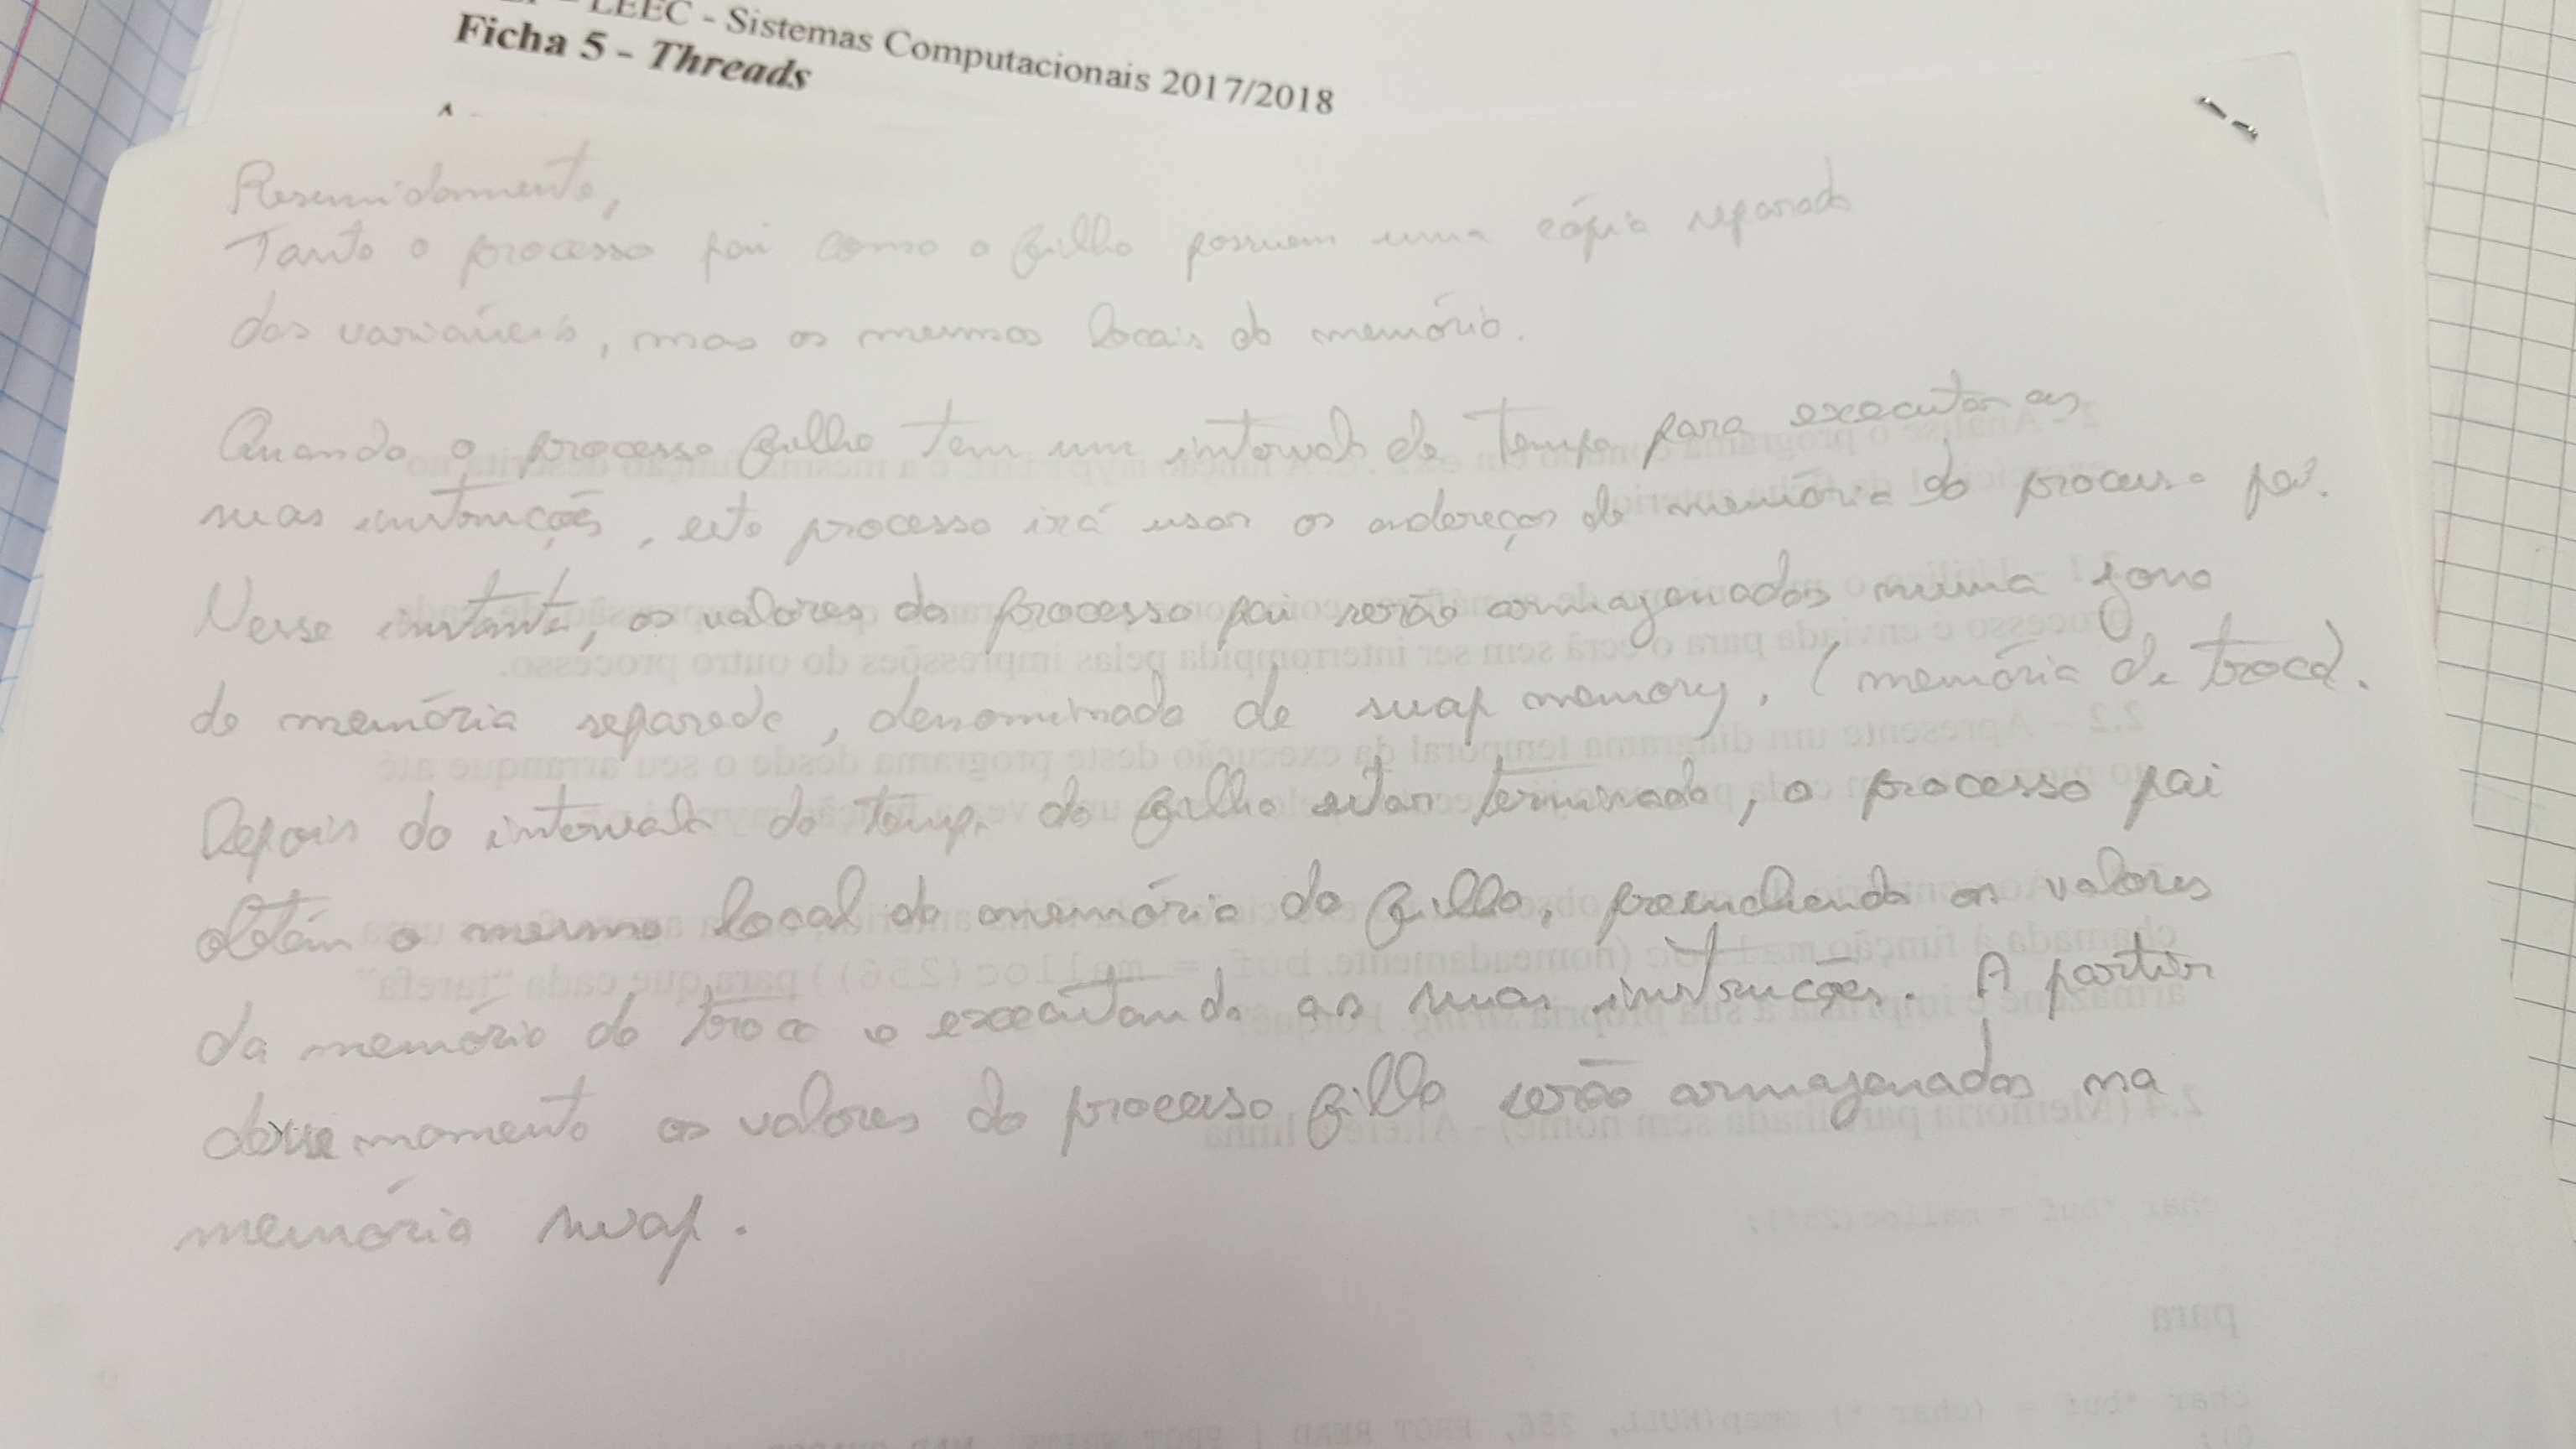 LEEC - Sistemas Computacionais 2017/2018
Ficha 5 - Threads
Resumidamente,
Tanto o processo pai como o filho possuem uma cópia separada
das variáveis, mas os mesmos locais de memória.
Quando o processo filho tem um intervalo de tempo para executar as
suas instruções, este processo irá usar os endereços de memória do processo pai.
Nesse instante, os valores do processo pai serão armazenados numa zona
de memória separada, denominada de swap memory, (memória de troca).
Depois do intervalo de tempo do filho estar terminado, o processo pai
obtém o mesmo local de memória do filho, preenchendo os valores
da memória de troca e executando as suas instruções. A partir
desse momento os valores do processo filho serão armazenados na
memória swap.